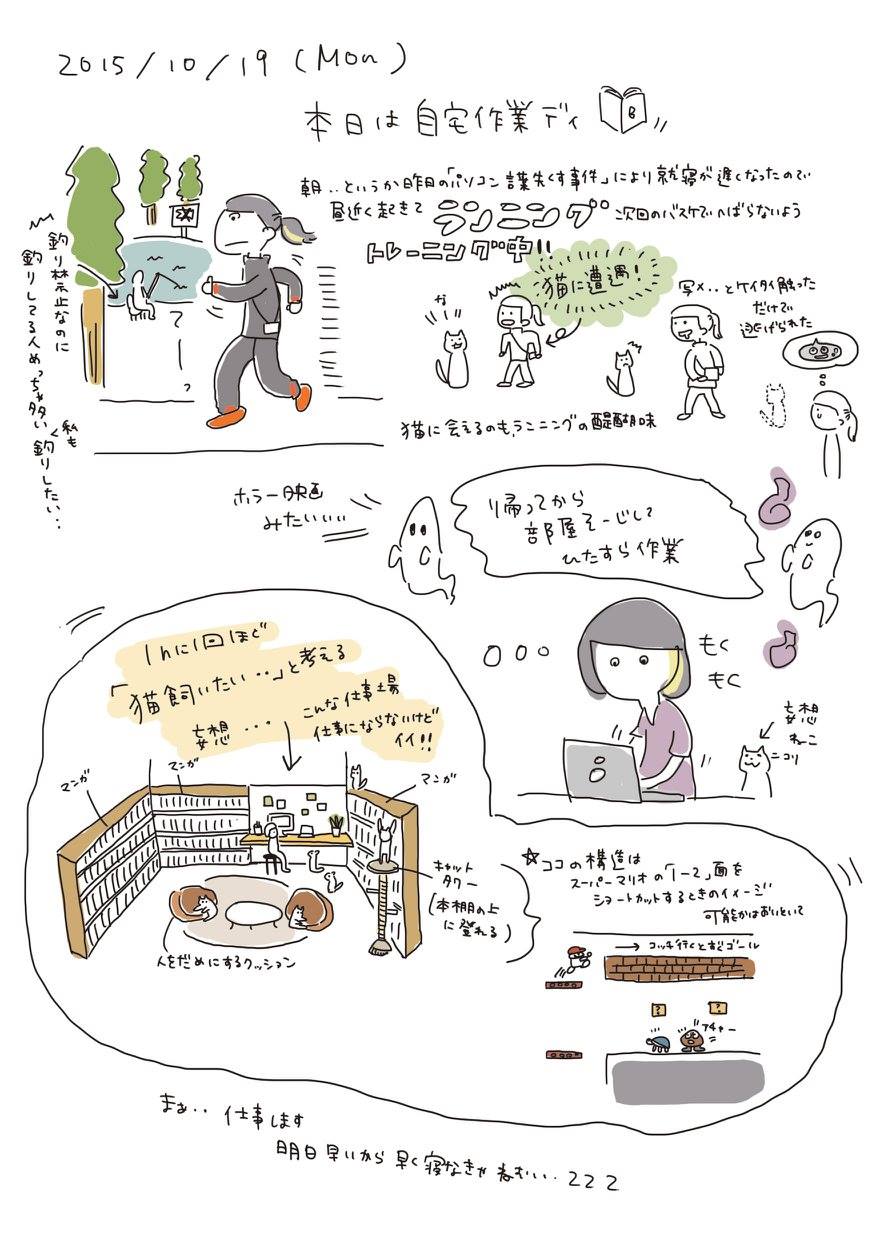 2015/10/19 (Mon)
本日は自宅作業デイ
B
朝‥というか昨日の「パソコン謀失くす事件」により就寝が遅くなったので
昼近く起きて ランニング 次回のバスケでへばらないよう
トレーニング中!!
釣り禁止なのに
釣りしてる人めっちゃ多い
私も
釣りしたい‥
て
な
猫に遭遇!
写メ‥とケイタイ触った
だけで
逃げられた
猫に会えるのも、ランニングの醍醐味
ホラー映画
みたいぃぃ
帰ってから
部屋そーじして
ひたすら作業
もく
もく
妄想
ねこ
ニコリ
1hに1回ほど
「猫飼いたい‥」と考える
妄想・・・
こんな仕事場
仕事にならないけど
イイ!!
マンガ
マンガ
マンガ
キャット
タワー
(本棚の上
に登れる)
人をだめにするクッション
☆ココの構造は
スーパーマリオの「1-2」面を
ショートカットするときのイメージ
可能かはおいといて
→コッチ行くとすぐゴール
?
?
アチャー
まぁ‥ 仕事します
明日早いから早く寝なきゃ ねむい‥ZZZ